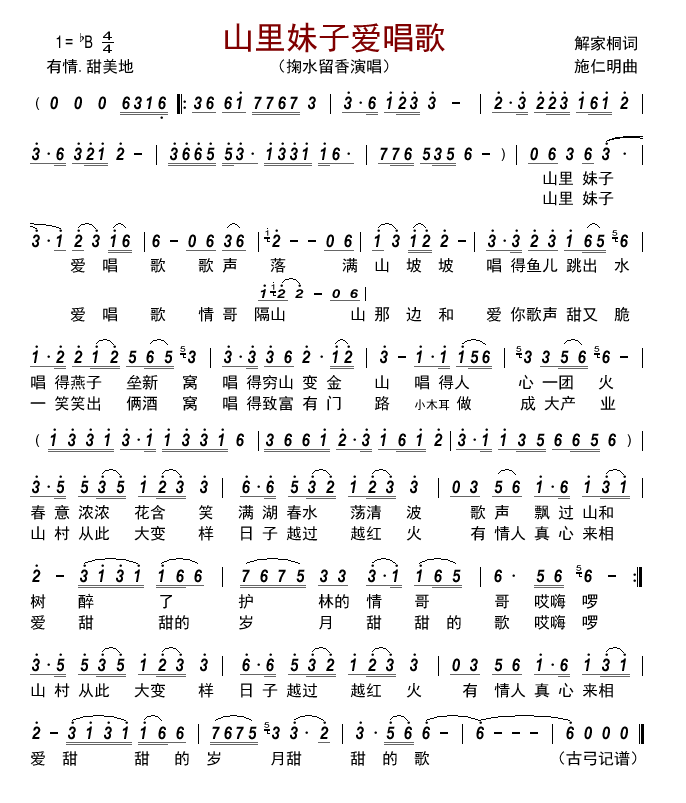 山里妹子爱唱歌
1= ♭B 4/4
解家桐词
有情.甜美地
（掬水留香演唱）
施仁明曲
( 0 0 0 6316 ‖: 36 61 7767 3 | 3·6 123 3 – | 2·3 223 161 2 |
3·6 321 2 – | 3665 53· 1331 16· | 776 535 6 – ) | 06 36 3 · |
山里 妹子
山里 妹子
3·1 23 16 | 6 – 06 36 | 12 – – 06 | 13 12 2 – | 3·3 23 165 56 |
爱 唱 歌 歌声 落 满 山 坡 坡 唱 得鱼儿 跳出 水
112 2 – 06 |
爱 唱 歌 情哥 隔山 山 那 边 和 爱 你歌声 甜又 脆
1·2 212 565 53 | 3·3 36 2·12 | 3 – 1·1 156 | 53 356 56 – |
唱 得燕子 垒新 窝 唱 得穷山 变 金 山 唱 得人 心 一团 火
一 笑笑出 俩酒 窝 唱 得致富 有 门 路 小木耳 做 成 大产 业
( 1331 3·1 1331 6 | 3661 2·3 1612 | 3·1 135 6656 ) |
3·5 535 123 3 | 6·6 532 123 3 | 03 56 1·6 131 |
春 意 浓浓 花含 笑 满 湖 春水 荡清 波 歌 声 飘 过 山和
山 村 从此 大变 样 日 子 越过 越红 火 有 情人 真 心 来相
2 – 3131 166 | 7675 33 3·1 165 | 6· 56 56 – :‖
树 醉 了 护 林的 情 哥 哥 哎嗨 啰
爱 甜 甜的 岁 月 甜 甜 的 歌 哎嗨 啰
3·5 535 123 3 | 6·6 532 123 3 | 03 56 1·6 131 |
山 村 从此 大变 样 日 子 越过 越红 火 有 情人 真 心 来相
2 – 3131 166 | 7675 53 3·2 | 3· 56 6 – | 6 – – – | 6 0 0 0 ‖
爱 甜 甜 的 岁 月甜 甜 的 歌 （古弓记谱）